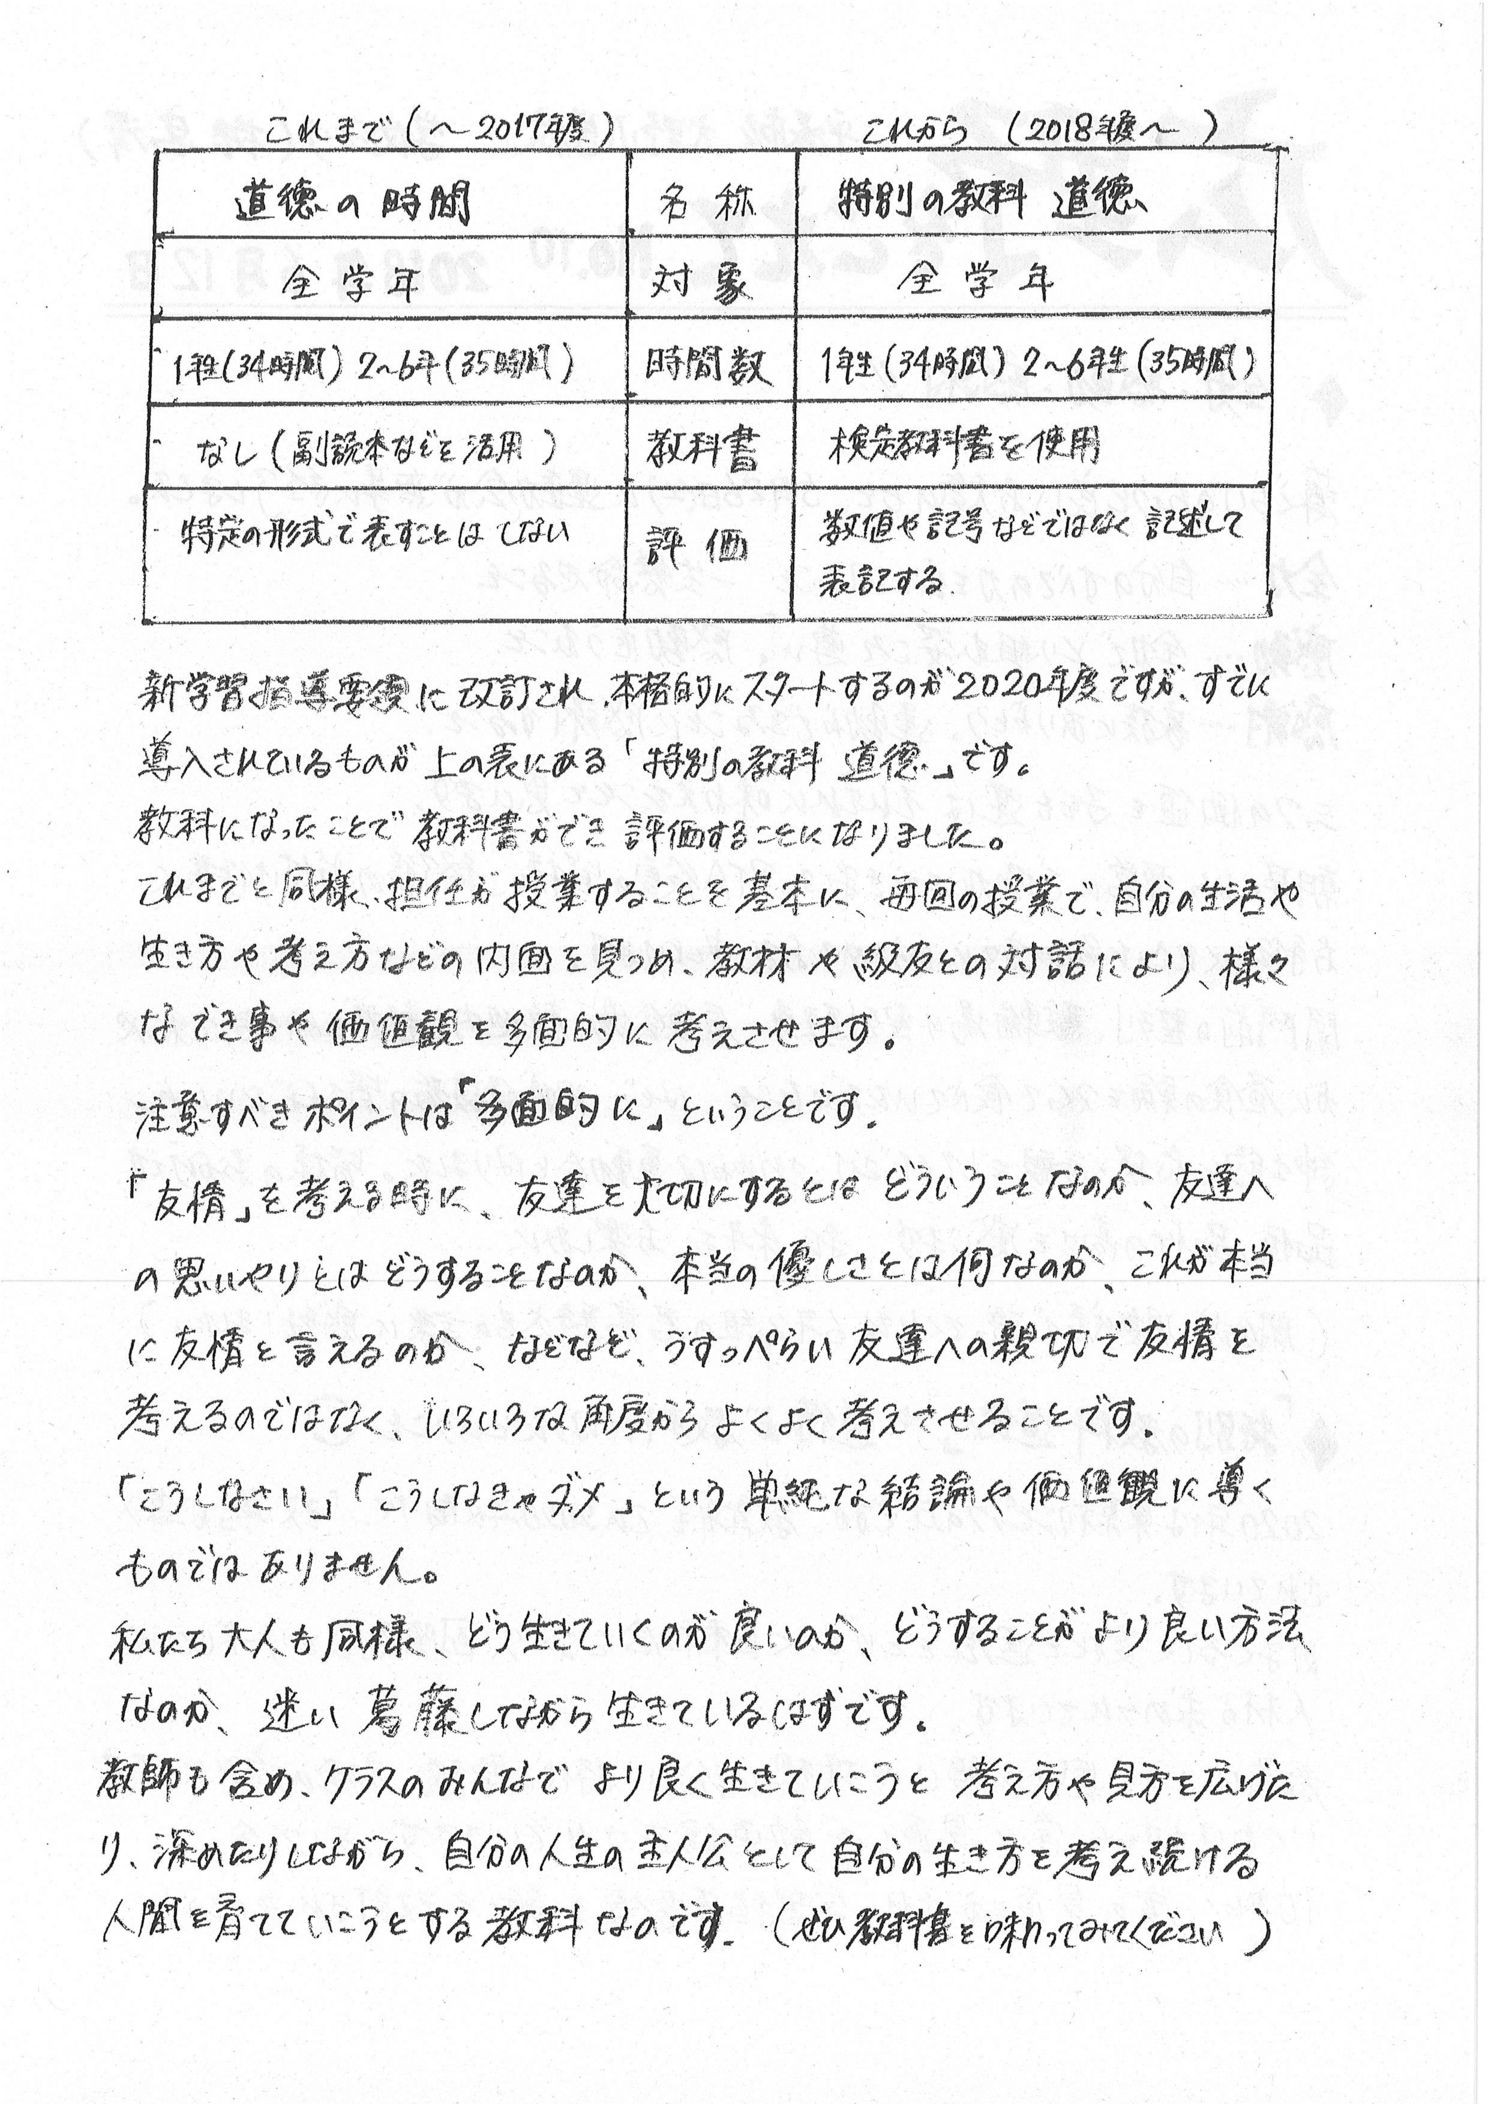 これまで(～2017年度) これから (2018年度～ )
道徳の時間 名称 特別の教科 道徳
全学年 対象 全学年
1年生(34時間) 2～6年(35時間) 時間数 1年生(34時間) 2～6年生(35時間)
なし(副読本などを活用) 教科書 検定教科書を使用
特定の形式で表すことはしない 評価 数値や記号などではなく記述して
表記する.
新学習指導要領に改訂され、本格的にスタートするのが2020年度ですが、すでに
導入されているものが上の表にある「特別の教科 道徳」です。
教科になったことで教科書ができ評価することになりました。
これまでと同様、担任が授業することを基本に、毎回の授業で、自分の生活や
生き方や考え方などの内面を見つめ、教材や級友との対話により、様々
なでき事や価値観を多面的に考えさせます。
注意すべきポイントは「多面的に」ということです。
「友情」を考える時に、友達を大切にするとはどういうことなのか、友達へ
の思いやりとはどうすることなのか、本当の優しさとは何なのか、これが本当
に友情と言えるのか、などなど、うすっぺらい友達への親切で友情を
考えるのではなく、いろいろな角度からよくよく考えさせることです。
「こうしなさい」「こうしなきゃダメ」という単純な結論や価値観に導く
ものではありません。
私たち大人も同様、どう生きていくのが良いのか、どうすることがより良い方法
なのか、迷い葛藤しながら生きているはずです。
教師も含め、クラスのみんなでより良く生きていこうと考え方や見方を広げた
り、深めたりしながら、自分の人生の主人公として自分の生き方を考え続ける
人間を育てていこうとする教科なのです。(ぜひ教科書を味わってみてください)